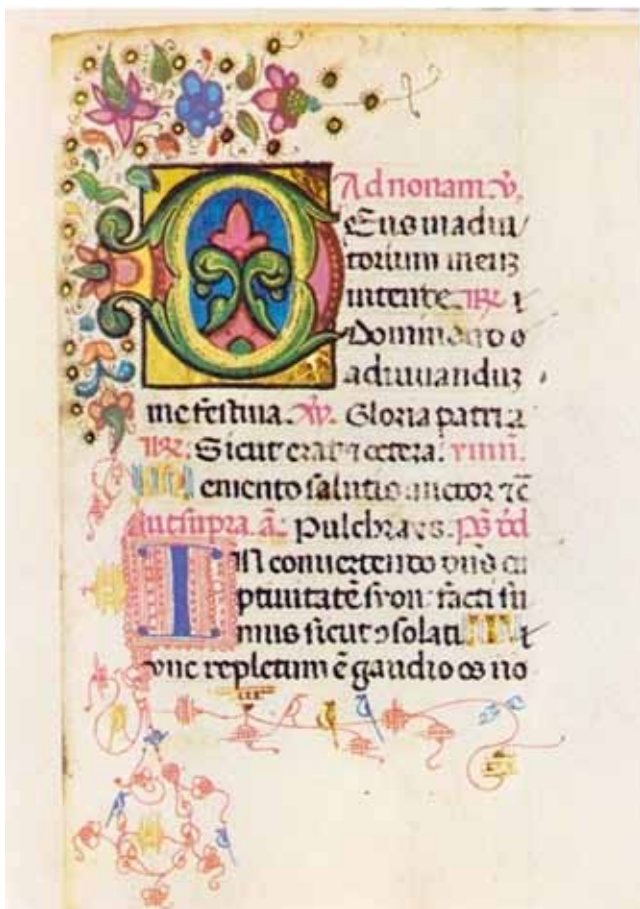 Ad nonam. v̄.
Eus in adiu
torium meuʒ
intende. ꝶ
Domine ad
adiuuanduʒ
me festina. v̄. Gloria patri
ꝶ. Sicut erat ⁊ cetera.
emento salutis auctor ⁊c̄
ut supra. ā. Pulchra es. p̄s
N conuertendo dn̄s ca
ptiuitatē syon: facti su
mus sicut ↄsolati. T
unc repletum ē gaudio os no